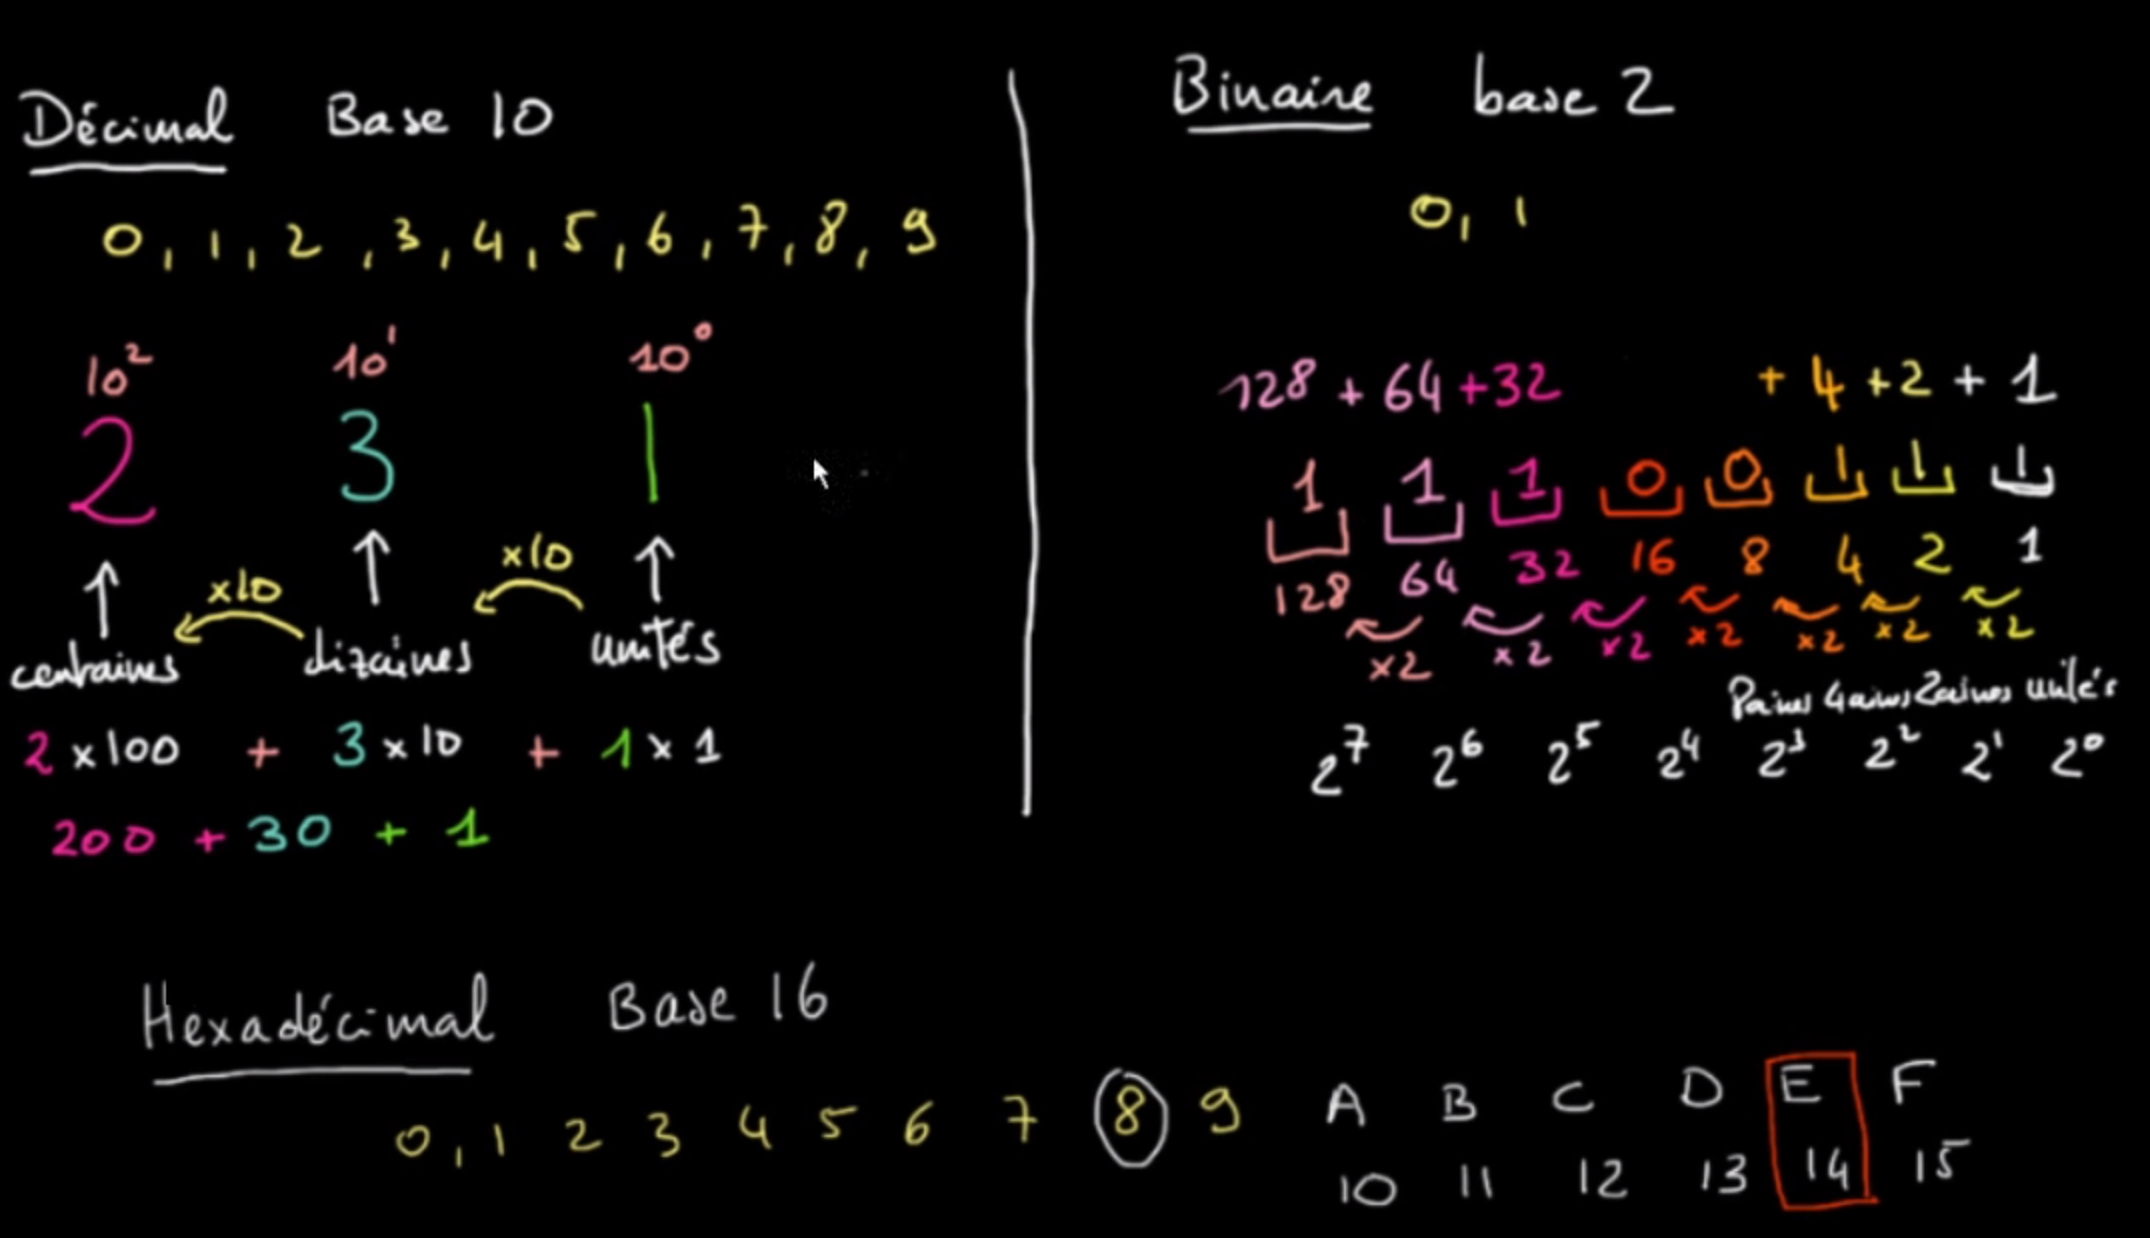 Décimal Base 10
0, 1, 2, 3, 4, 5, 6, 7, 8, 9
10² 10¹ 10⁰
2 3 1
x10 x10
centaines dizaines unités
2 x 100 + 3 x 10 + 1 x 1
200 + 30 + 1
Binaire base 2
0, 1
128 + 64 + 32 + 4 + 2 + 1
1 1 1 0 0 1 1 1
128 64 32 16 8 4 2 1
x2 x2 x2 x2 x2 x2 x2
4aines 2aines unités
2⁷ 2⁶ 2⁵ 2⁴ 2³ 2² 2¹ 2⁰
Hexadécimal Base 16
0, 1 2 3 4 5 6 7 8 9 A B C D E F
10 11 12 13 14 15